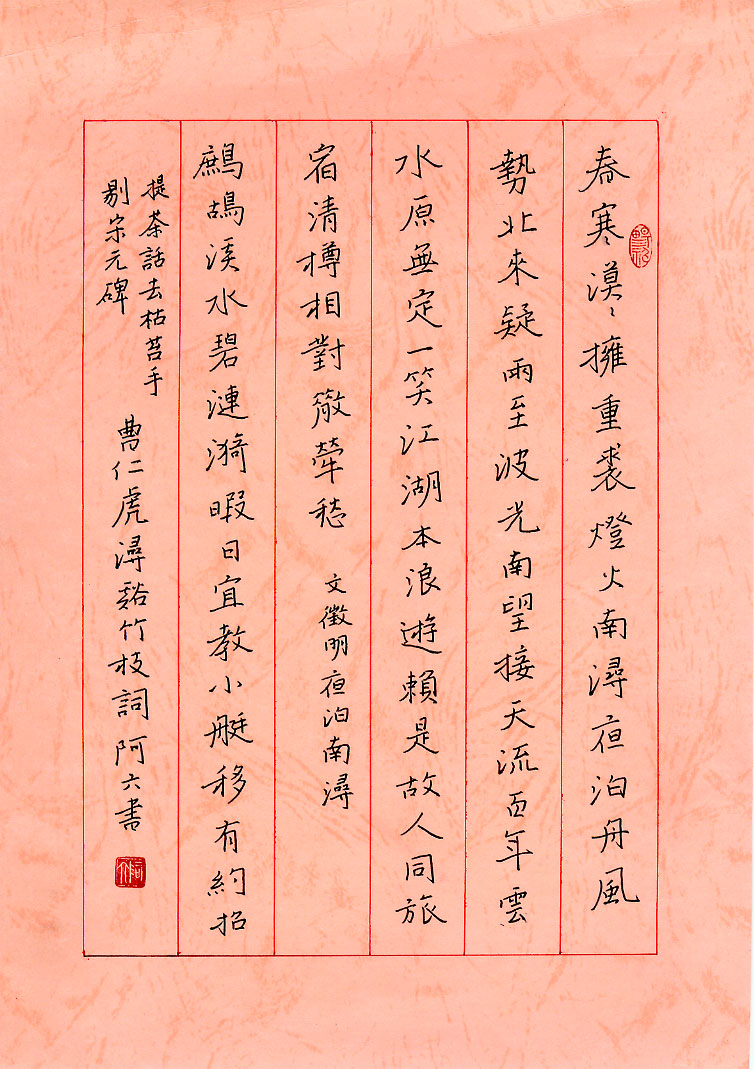 春寒漠〻擁重裘燈火南潯夜泊舟風
勢北來疑雨至波光南望接天流百年雲
水原無定一笑江湖本浪遊賴是故人同旅
宿清樽相對散牽愁
文徵明夜泊南潯
鷓鴣溪水碧漣漪暇日宜教小艇移有約招
提茶話去枯苔手
剔宋元碑
曹仁虎潯谿竹枝詞阿六書